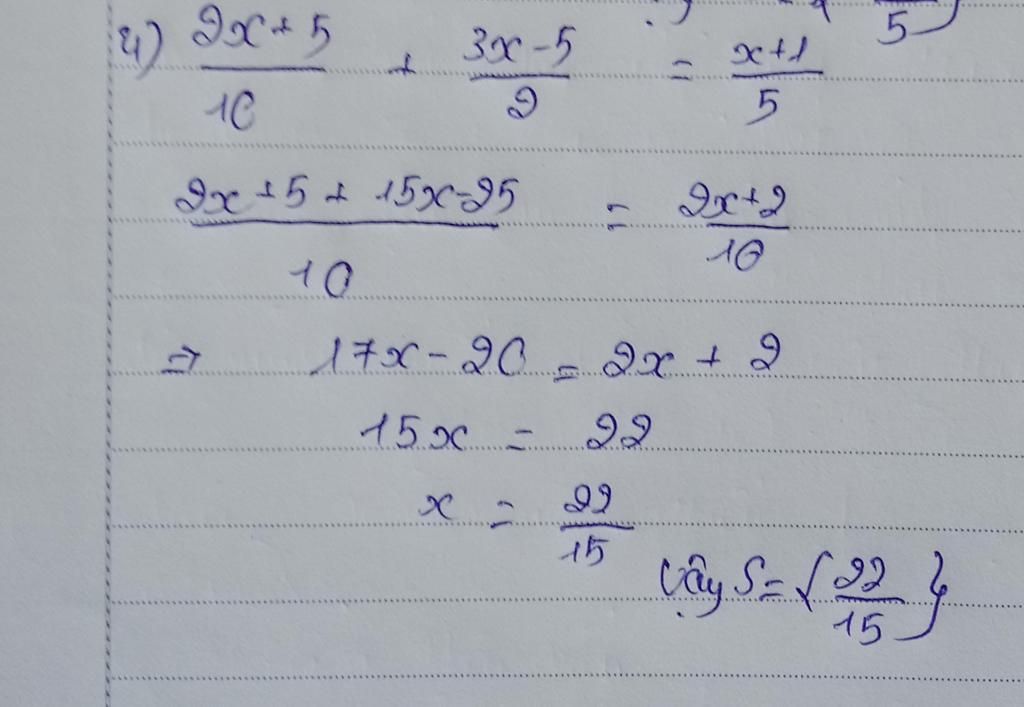 4) (2x+5)/10 + (3x-5)/2 = (x+1)/5
(2x+5+15x-25)/10 = (2x+2)/10
=> 17x-20 = 2x+2
15x = 22
x = 22/15
Vậy S={22/15}